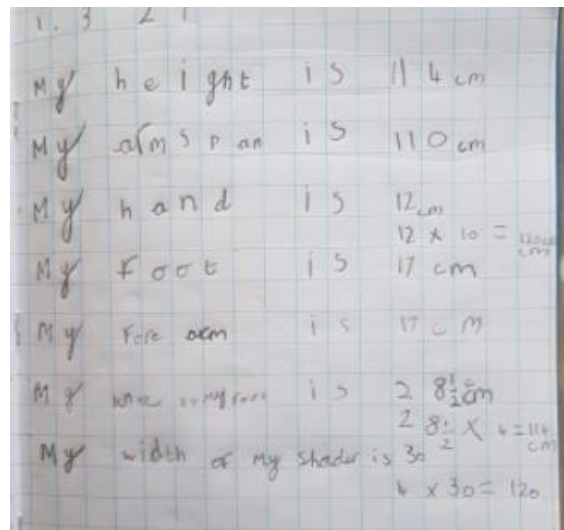 1. 3 2 1
My height is 114 cm
My armspan is 110 cm
My hand is 12cm
12 x 10 = 120 cm
My Foot is 17 cm
My Fore arm is 17 cm
My knee is 2 8½cm
2 8½ x 4 = 114 cm
My width of my shoder is 30
4 x 30 = 120